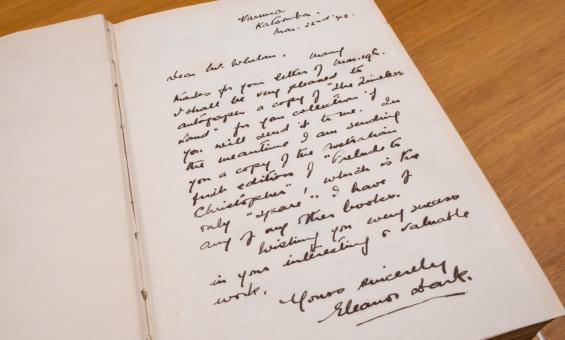 Varuna
Katoomba.
Mar. 22nd '42.
Dear Mr. Whelan, Many
thanks for your letter of Mar. 19th.
I shall be very pleased to
autograph a copy of "The Timeless
Land" for your collection if
you will send it to me. In
the meantime I am sending
you a copy of the Australian
first edition of "Prelude to
Christopher", which is the
only "spare" I have of
any of my other books.
Wishing you every success
in your interesting & valuable
work.
Yours sincerely
Eleanor Dark.